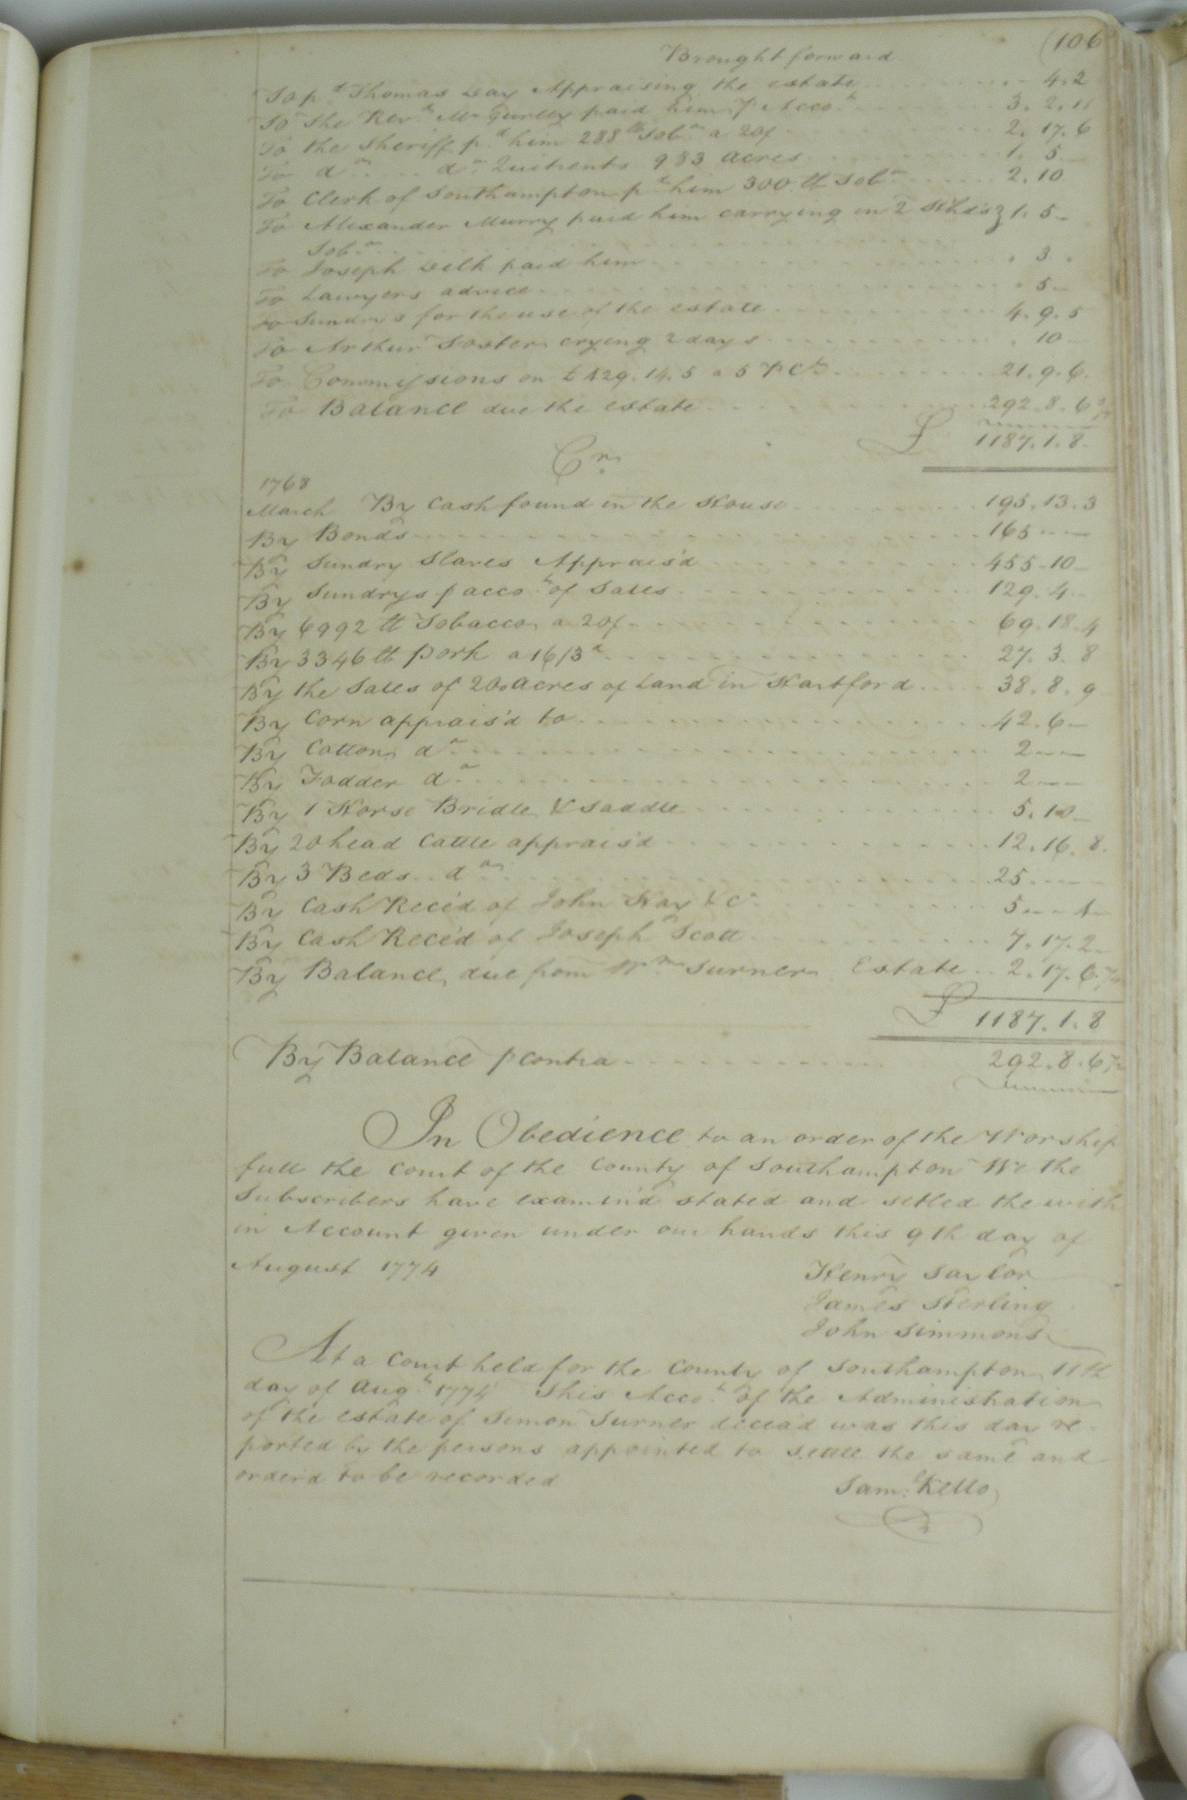 (106
Brought forward
To p.d Thomas Day Appraising the estate . . . . 4. 2
To The Rev.d Mr Gurley paid him p Acco.t . . . . 3. 2. 11
To the Sheriff p.d him 288 lb Tob.o a 20/ . . . . 2. 17. 6
To do . . . do Quitrents 983 acres . . . . 1. 5 —
To Clerk of Southampton p.d him 300 lb Tob.o . . . . 2. 10
To Alexander Murry paid him carrying in 2 Hhds } 1. 5 —
Tob.o
To Joseph Delk paid him . . . . . 3 .
To Lawyers advice . . . . . 5 —
To Sundrys for the use of the estate . . . . 4. 9. 5
To Arthur Foster crying 2 days . . . . . 10 —
To Commissions on £ 429. 14. 5 a 5 p Ct . . . . 21. 9. 6
To Balance due the estate . . . . 292. 8. 6
£ 1187. 1. 8
Cr
1768
March By Cash found in the House . . . . 195. 13. 3
By Bonds . . . . 165 — —
By Sundry Slaves Apprais'd . . . . 455. 10 —
By Sundrys p acco.t of Sales . . . . 129. 4 —
By 6992 lb Tobacco a 20/ . . . . 69. 18. 4
By 3346 lb pork a 16/3d . . . . 27. 3. 8
By the Sales of 200 acres of Land in Hartford . . . . 38. 8. 9
By Corn apprais'd to . . . . 42. 6 —
By Cotton do . . . . 2 — —
By Fodder do . . . . 2 — —
By 1 Horse Bridle & Saddle . . . . 5. 10 —
By 20 head Cattle apprais'd . . . . 12. 16. 8
By 3 Beds . . do . . . . 25 — —
By Cash Rece'd of John Hay & Co . . . . 5 —
By Cash Rece'd of Joseph Scott . . . . 7. 17. 2
By Balance due from Wm Turners Estate . . 2. 17. 6
£ 1187. 1. 8
By Balance p Contra . . . . 292. 8. 6
In Obedience to an order of the Worship
full the Court of the County of Southampton We the
Subscribers have examin'd stated and setled the with
in Account given under our hands this 9th day of
August 1774
Henry Taylor
James Sterling
John Simmons
At a Court held for the County of Southampton 11th
day of Aug.t 1774 This Acco.t of the Administration
of the estate of Simon Turner decea'd was this day re-
ported by the persons appointed to settle the same and
order'd to be recorded
Sam.l Kello